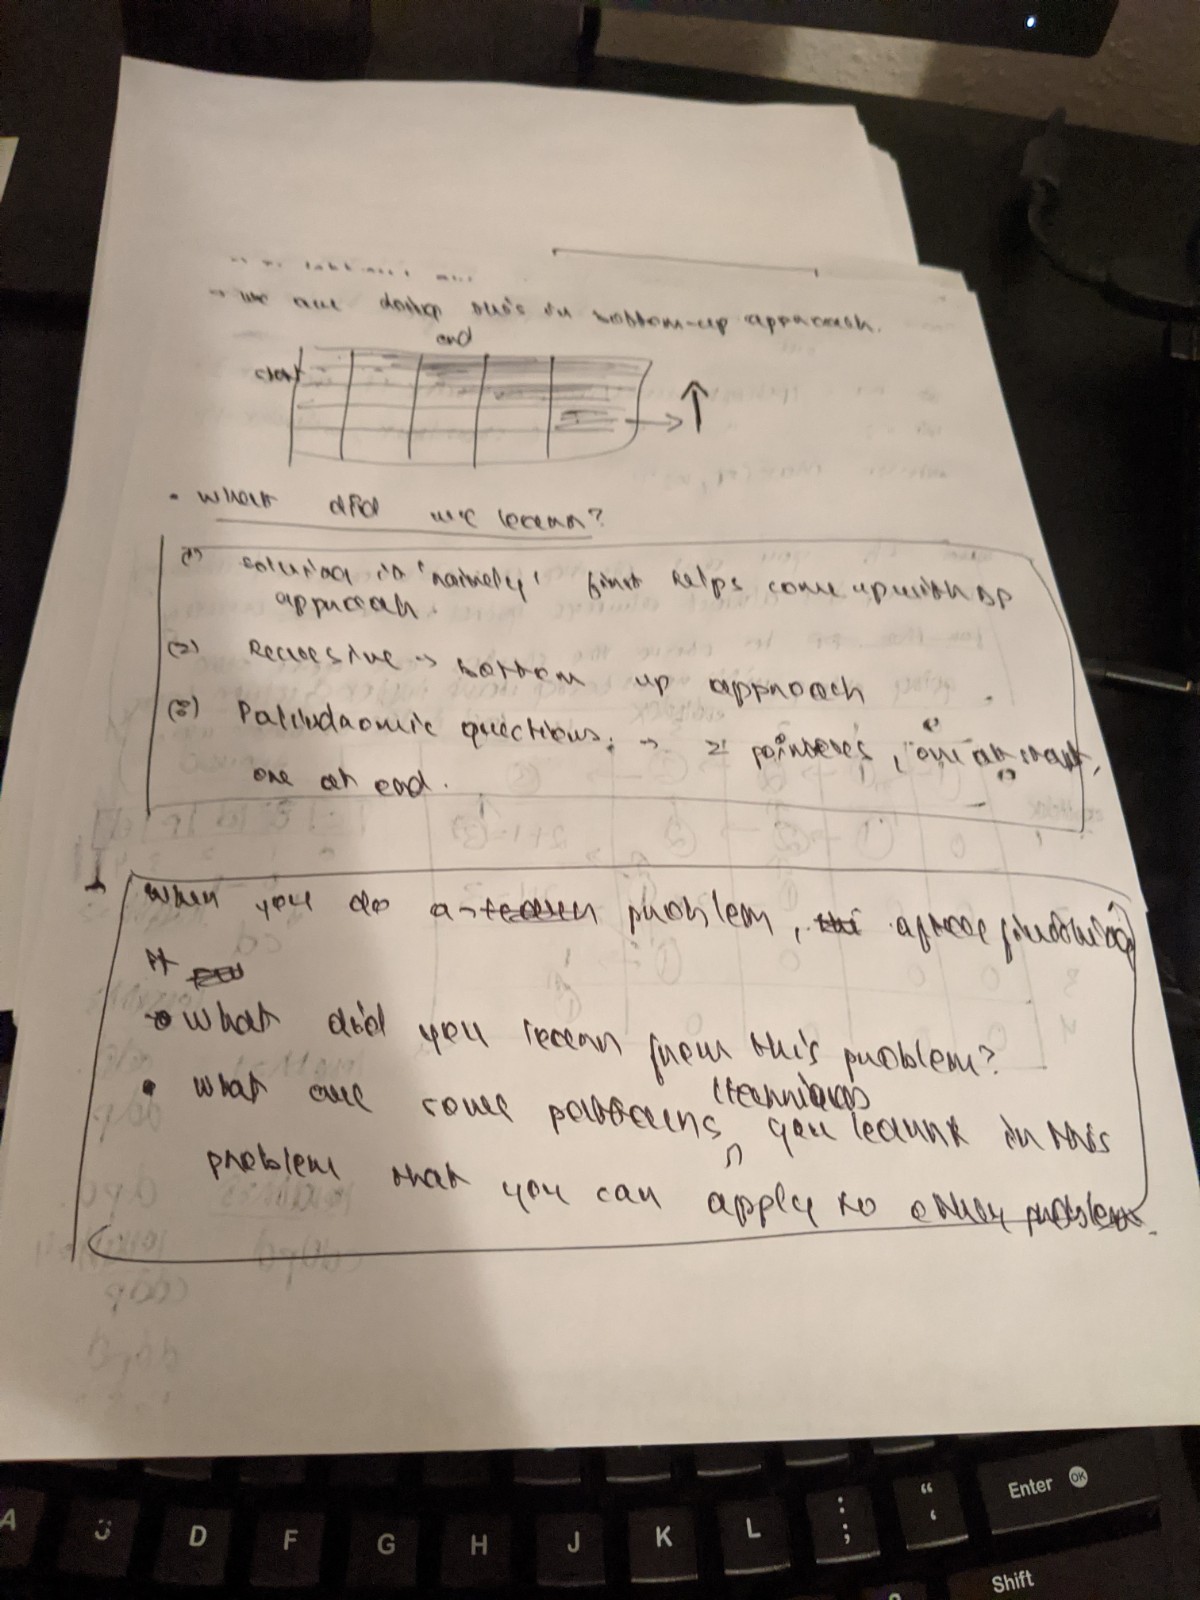 → we are doing this in bottom-up approach.
end
start
• What did we learn?
(1) solving it 'naively' first helps come up with DP
approach.
(2) Recursive → bottom up approach
(3) Palindromic questions: → 2 pointers, one at start,
one at end.
When you do a problem, after finishing
it
• What did you learn from this problem?
(techniques)
• What are some patterns you learnt in this
problem that you can apply to other problem.
A S D F G H J K L : ; “ ‘ Enter OK
Shift